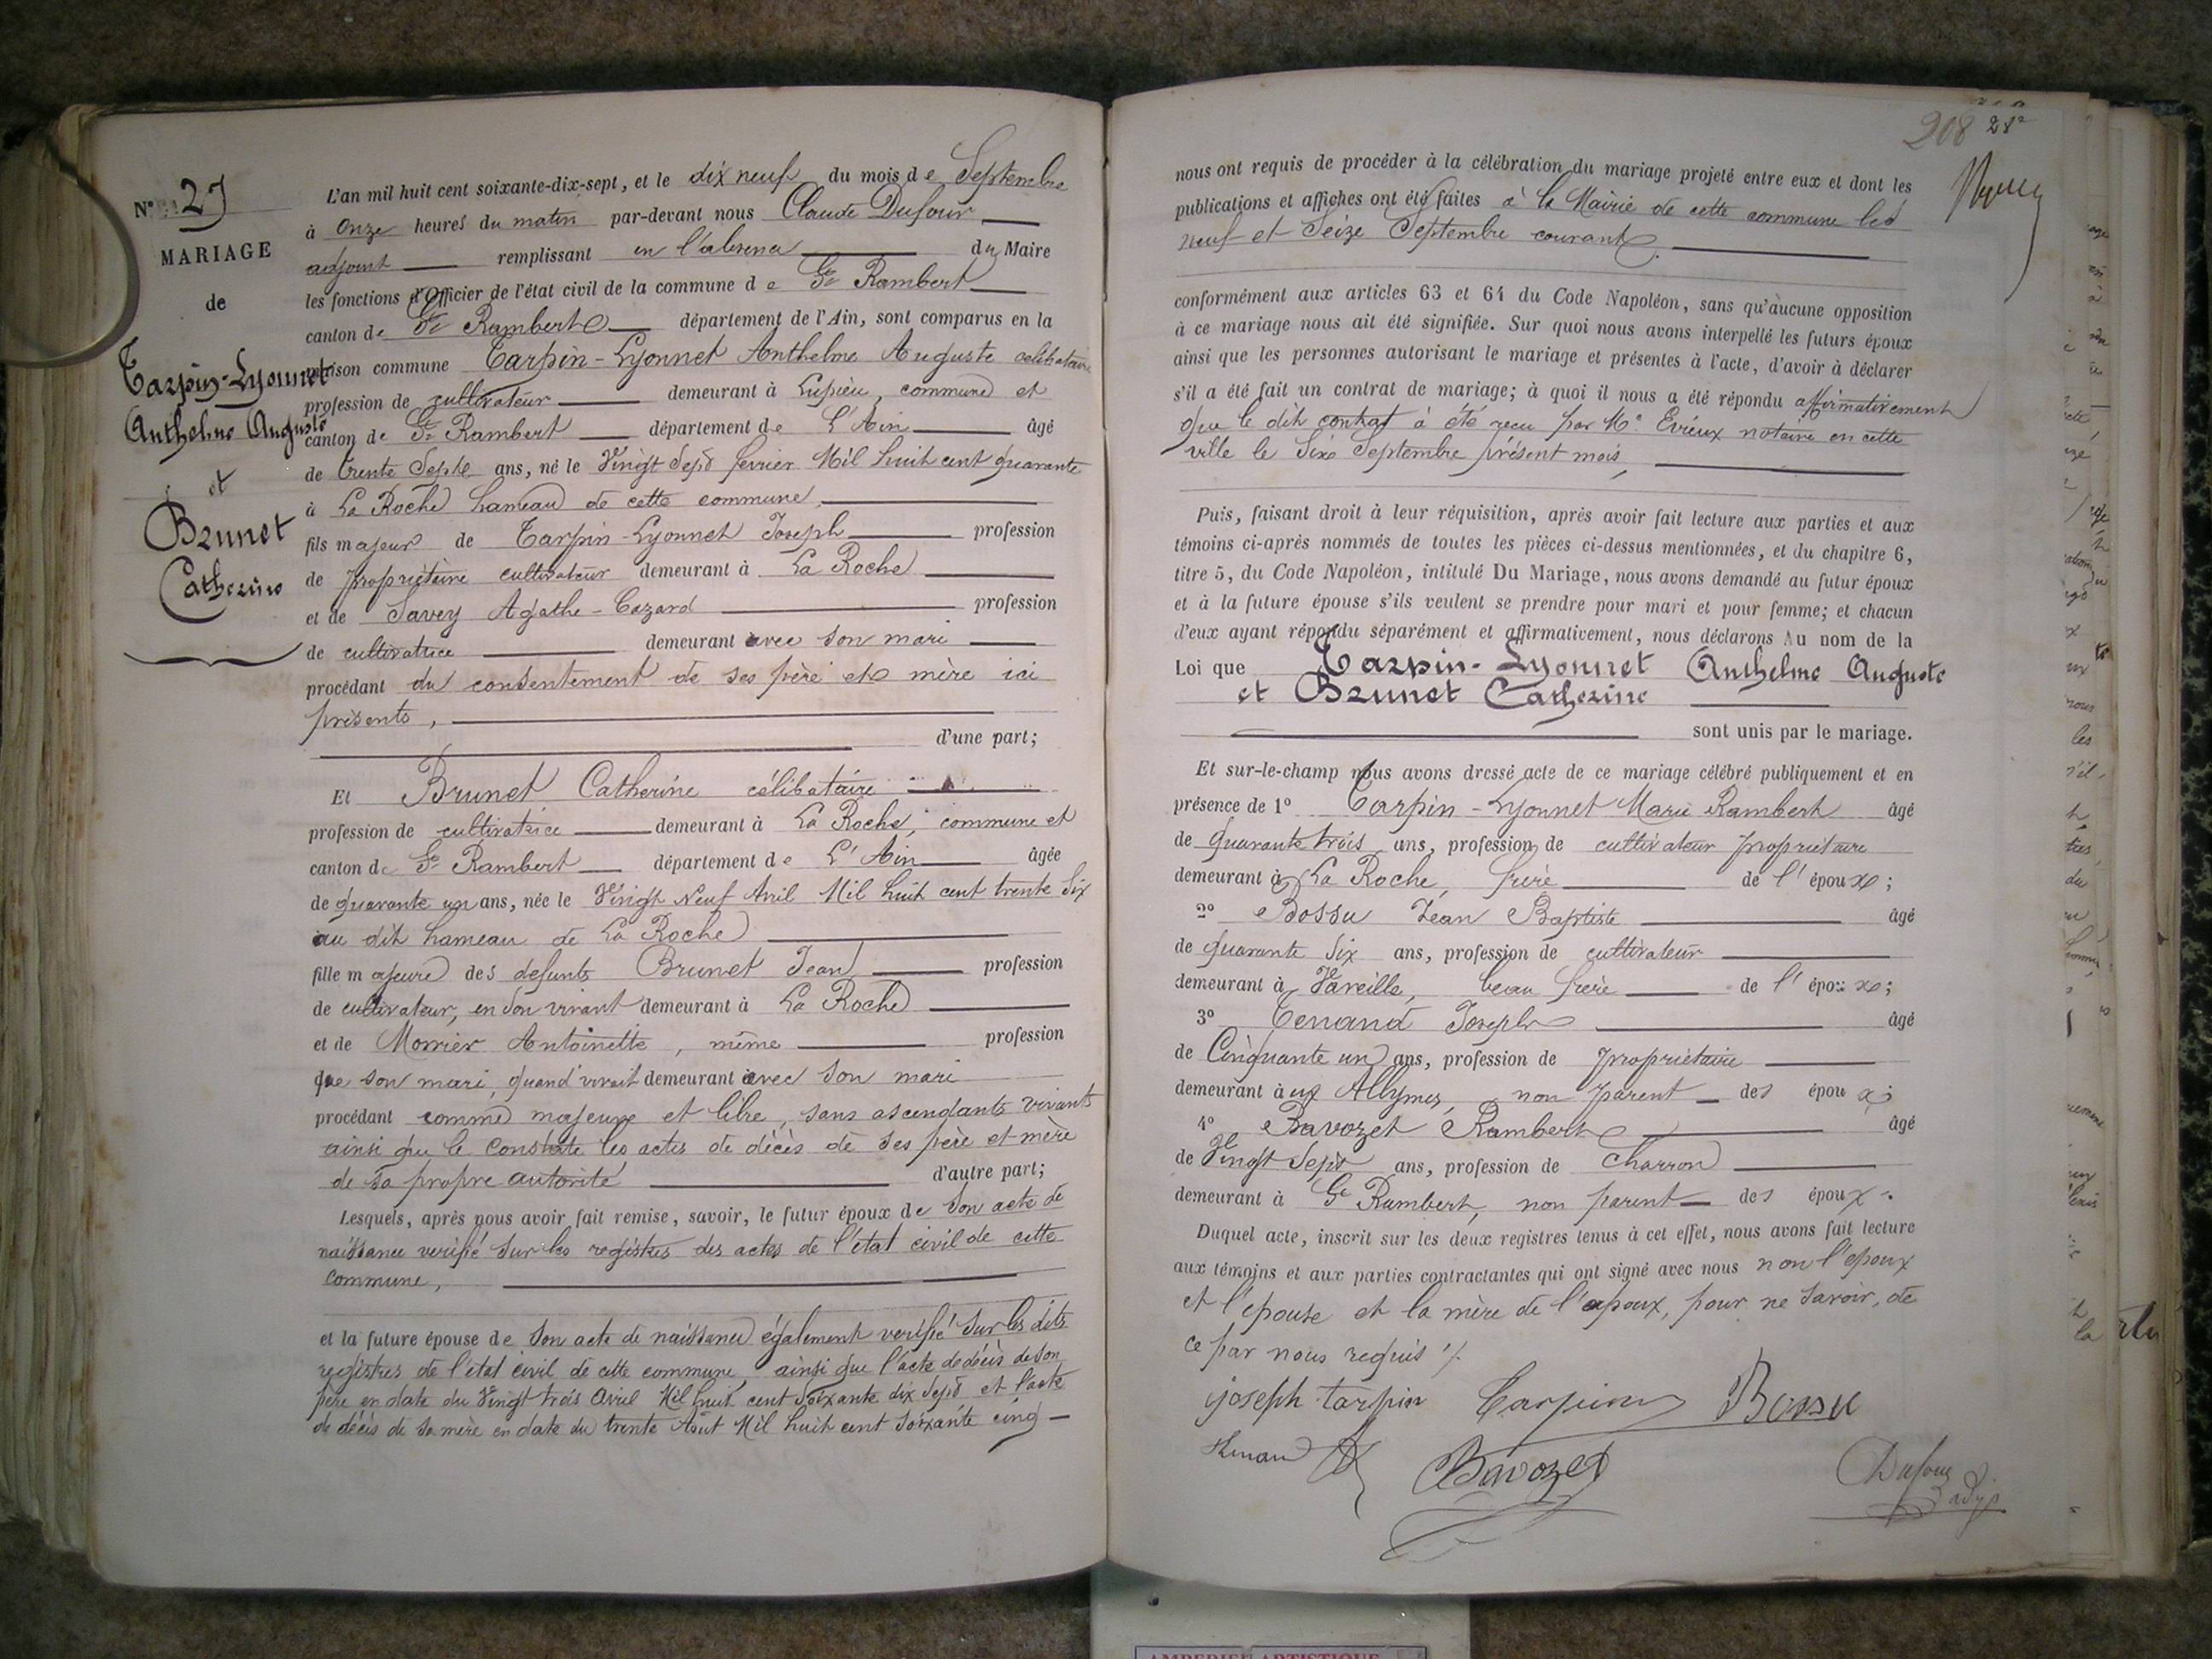 N° 27
MARIAGE
de
Tarpin-Lyonnet
Anthelme Auguste
et
Brunet
Catherine
L'an mil huit cent soixante-dix-sept, et le dix neuf du mois de Septembre
à Onze heures du matin par-devant nous Claude Dufour
adjoint remplissant en l'absence du Maire
les fonctions d'Officier de l'état civil de la commune de St Rambert
canton de St Rambert département de l'Ain, sont comparus en la
maison commune Tarpin-Lyonnet Anthelme Auguste célibataire
profession de cultivateur demeurant à Lupieu, commune et
canton de St Rambert département de L'Ain âgé
de trente Sept ans, né le Vingt Sept fevrier Mil huit cent quarante
à La Roche hameau de cette commune,
fils majeur de Tarpin-Lyonnet Joseph profession
de propriétaire cultivateur demeurant à La Roche
et de Savey Agathe-Cazard profession
de cultivatrice demeurant avec son mari
procédant du consentement de ses père et mère ici
présents,
d'une part;
Et Brunet Catherine célibataire
profession de cultivatrice demeurant à La Roche, commune et
canton de St Rambert département de L'Ain âgée
de quarante un ans, née le Vingt Neuf Avril Mil huit cent trente Six
au dit hameau de La Roche
fille majeure des defunts Brunet Jean profession
de cultivateur, en son vivant demeurant à La Roche
et de Morrier Antoinette, même profession
que son mari, quand vivait demeurant avec son mari
procédant comme majeure et libre, sans ascendants vivants
ainsi que le constate les actes de décès de ses père et mère
de sa propre autorité d'autre part;
Lesquels, après nous avoir fait remise, savoir, le futur époux de son acte de
naissance verifié sur les registres des actes de l'état civil de cette
commune,
et la future épouse de son acte de naissance également verifié sur les dits
registres de l'état civil de cette commune, ainsi que l'acte de décès de son
père en date du Vingt trois Avril Mil huit cent Soixante dix Sept et l'acte
de décès de sa mère en date du trente Août Mil huit cent soixante cinq
208 28
nous ont requis de procéder à la célébration du mariage projeté entre eux et dont les
publications et affiches ont été faites à la Mairie de cette commune les
neuf et Seize Septembre courant
conformément aux articles 63 et 64 du Code Napoléon, sans qu'aucune opposition
à ce mariage nous ait été signifiée. Sur quoi nous avons interpellé les futurs époux
ainsi que les personnes autorisant le mariage et présentes à l'acte, d'avoir à déclarer
s'il a été fait un contrat de mariage; à quoi il nous a été répondu affirmativement
que le dit contrat à été reçu par Me Evieux notaire en cette
ville le Six Septembre présent mois,
Puis, faisant droit à leur réquisition, après avoir fait lecture aux parties et aux
témoins ci-après nommés de toutes les pièces ci-dessus mentionnées, et du chapitre 6,
titre 5, du Code Napoléon, intitulé Du Mariage, nous avons demandé au futur époux
et à la future épouse s'ils veulent se prendre pour mari et pour femme; et chacun
d'eux ayant répondu séparément et affirmativement, nous déclarons Au nom de la
Loi que Tarpin-Lyonnet Anthelme Auguste
et Brunet Catherine
sont unis par le mariage.
Et sur-le-champ nous avons dressé acte de ce mariage célébré publiquement et en
présence de 1° Tarpin-Lyonnet Marie Rambert âgé
de quarante trois ans, profession de cultivateur propriétaire
demeurant à La Roche, frère de l'époux;
2° Bossu Jean Baptiste âgé
de quarante Six ans, profession de cultivateur
demeurant à Vareille, beau frère de l'époux;
3° Tenand Joseph âgé
de Cinquante un ans, profession de propriétaire
demeurant aux Allymes, non parent des époux;
4° Bavozet Rambert âgé
de Vingt Sept ans, profession de Charron
demeurant à St Rambert, non parent des époux.
Duquel acte, inscrit sur les deux registres tenus à cet effet, nous avons fait lecture
aux témoins et aux parties contractantes qui ont signé avec nous non l'époux
et l'épouse et la mère de l'époux, pour ne savoir, de
ce par nous requis
joseph tarpin Tarpin Bossu
tenan Bavozet Dufour adj.
AMBERIEU ARTISTIQUE